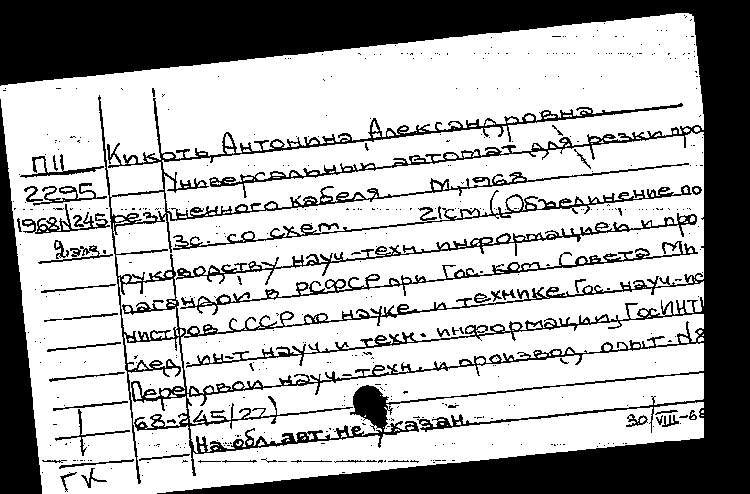 Кикоть, Антонина Александровна.
ПII
Универсальный автомат для резки про
2295
резиненного кабеля. М., 1968
1968N245
3с. со схем. 21см. (Объединение по
2 экз.
руководству науч.-техн. информацией и про-
пагандой в РСФСР при Гос. ком. Совета Ми-
нистров СССР по науке и технике. Гос. науч.-ис
след. ин-т науч. и техн. информации, ГосИНТИ
Передовой науч.-техн. и производ. опыт. N8
68-245/22)
На обл. авт. не указан.
30/VIII-68
ГК